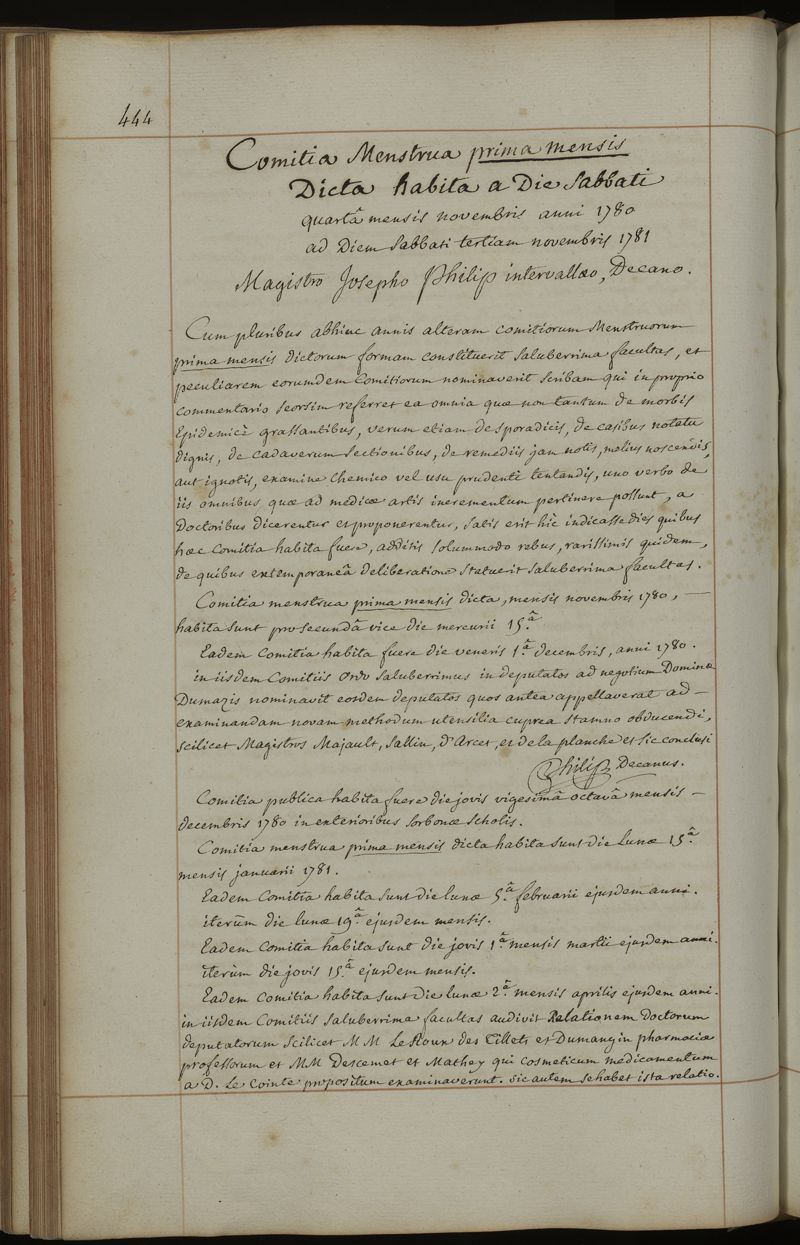 444
Comitia Menstrua prima mensis
Dicta habita a Die Sabbati
quartâ mensis novembris anni 1780
ad Diem Sabbati tertiam novembris 1781
Magistro Josepho Philip intervallæo, Decano.
Cum pluribus abhinc annis alteram comitiorum Menstruorum
prima mensis dictorum formam constituerit saluberrima facultas, et
peculiarem eorumdem Comitiorum nominaverit scribam qui in proprio
commentario seorsim referret ea omnia quæ non tantum de morbis
Epidemicè grassantibus, verum etiam de sporadicis, de casibus notatu
dignis, de cadaverum sectionibus, de remediis jam notis, melius noscendis,
aut ignotis, examine chemico vel usu prudenti tentandis, uno verbo de
iis omnibus quæ ad medicæ artis incrementum pertinere possunt, a
Doctoribus dicerentur et proponerentur, satis erit hîc indicasse dies quibus
hæc Comitia habita fuere, additis solummodo rebus, rarissimis quidem,
de quibus extemporaneâ deliberatione statuerit saluberrima facultas.
Comitia menstrua prima mensis dicta, mensis novembris 1780, —
habita sunt pro secundâ vice die mercurii 15.â
Eadem Comitia habita fuere die veneris 1.â decembris, anni 1780.
in iisdem Comitiis ordo saluberrimus in deputatos ad negotium Dominæ
Dumazis nominavit eosdem deputatos quos antea appellaverat ad —
examinandam novam methodum utensilia cuprea stamno obducendi,
scilicet Magistros Majault, Sallin, d'Arcet, et de la planche et sic conclusi
Philip Decanus.
Comitia publica habita fuere die jovis vigesimâ octavâ mensis —
decembris 1780 in exterioribus sorbonæ scholis.
Comitia menstrua prima mensis dicta habita sunt die Lunæ 15.â
mensis januarii 1781.
Eadem Comitia habita sunt die lunæ 5.â februarii ejusdem anni.
iterùm die lunæ 19.â ejusdem mensis.
Eadem Comitia habita sunt die jovis 1.â mensis martii ejusdem anni.
iterùm die jovis 15.â ejusdem mensis.
Eadem Comitia habita sunt die lunæ 2.â mensis aprilis ejusdem anni.
in iisdem Comitiis saluberrima facultas audivit Relationem Doctorum
deputatorum scilicet M M Le Roux des Tillets et Dumangin pharmaciæ
professorum et MM Descemet et Mathey qui cosmeticum medicamentum
a D. Le Cointe propositum examinaverunt. sic autem se habet ista relatio.